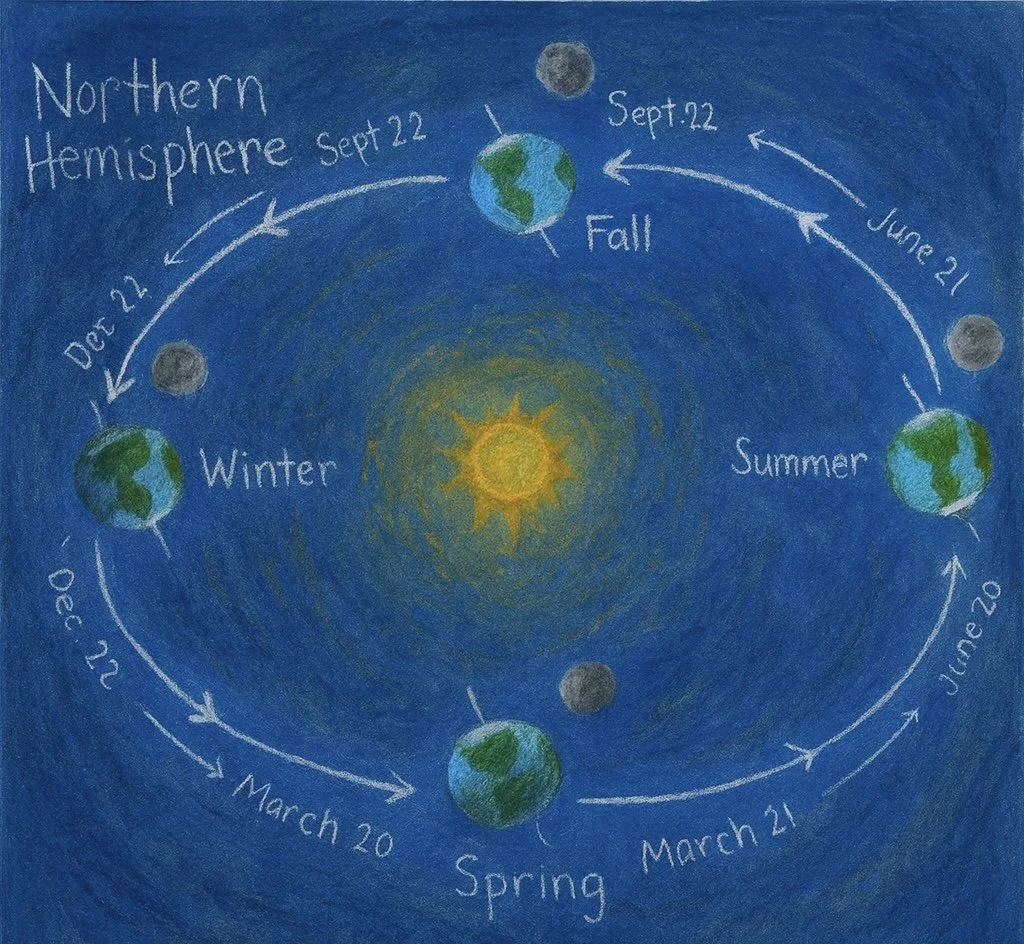 Northern
Hemisphere
Sept 22
Sept.22
June 21
Fall
Dec 22
Winter
Summer
Dec. 22
June 20
March 20
March 21
Spring